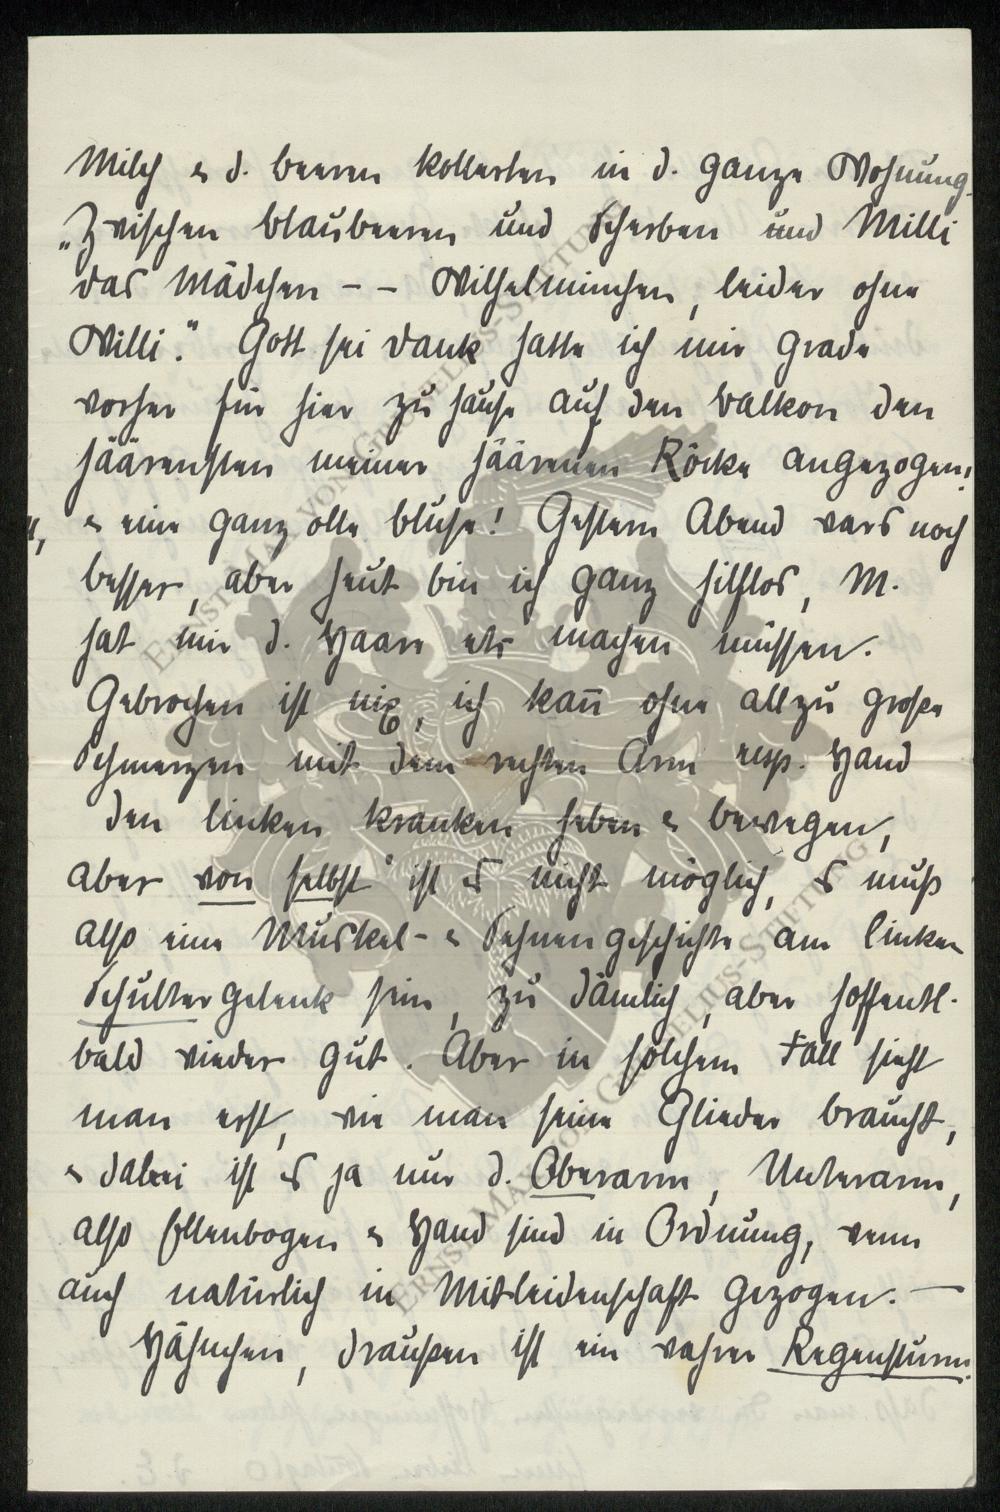 Milch & d. beeren kollerten in d. ganze Wohnung.
„Zwischen Blaubeeren und Scherben und Milli
das Mädchen – – Wilhelminchen, leider ohne
Willi.“ Gott sei Dank hatte ich mir grade
vorher für hier zu Hause auf den Balkon den
häärensten meiner häärenen Röcke angezogen,
& eine ganz olle Bluse! Gestern Abend wars noch
besser, aber heut bin ich ganz hilflos, M.
hat mir d. Haare etc machen müssen.
Gebrochen ist nix, ich kan̅ ohne allzu große
Schmerzen mit dem rechten Arm resp. Hand
den linken kranken heben & bewegen,
aber von selbst ist es nicht möglich, es muß
also eine Muskel- & Sehnengeschichte am linken
Schultergelenk sein, zu dämlich, aber hoffentl.
bald wieder gut. Aber in solchem Fall sieht
man erst, wie man seine Glieder braucht,
& dabei ist es ja nur d. Oberarm, Unterarm,
also Ellenbogen & Hand sind in Ordnung, wenn
auch natürlich in Mitleidenschaft gezogen. —
Hähnchen, draußen ist ein wahrer Regensturm.
ERNST MAX VON GRUNELIUS-STIFTUNG
ERNST MAX VON GRUNELIUS-STIFTUNG